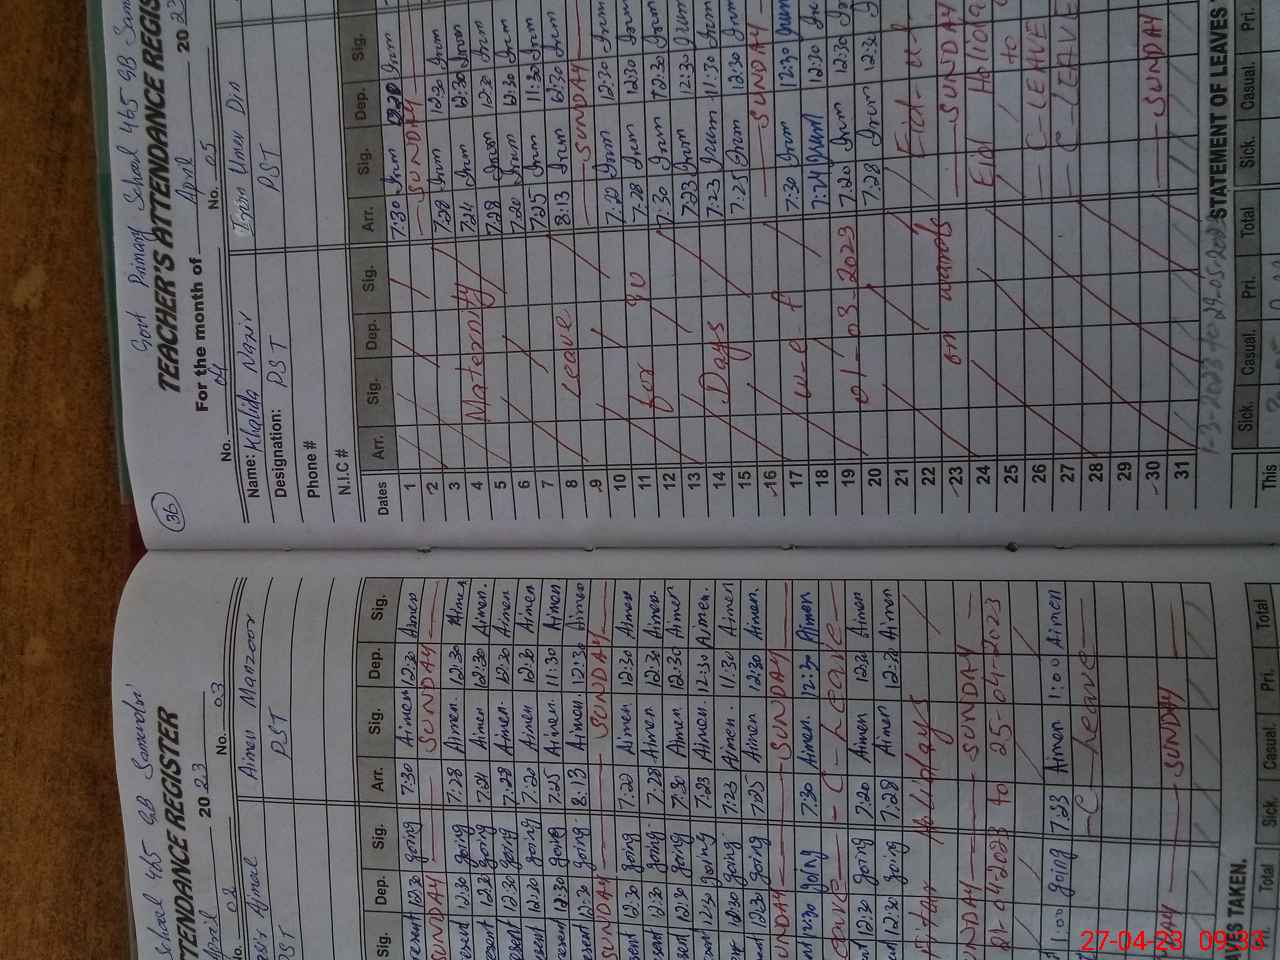 School 465 GB Samundri
ATTENDANCE REGISTER
April 2023
No. 02 No. 03
Ajmal Aimen Manzoor
PST PST
Sig. Dep. Sig. Arr. Sig. Dep. Sig.
resent 12:30 going 7:30 Aimen 12:30 Aimen
SUNDAY SUNDAY
resent 12:30 going 7:28 Aimen. 12:30 Aimen
resent 12:30 going 7:24 Aimen 12:30 Aimen.
resent 12:30 going 7:28 Aimen. 12:30 Aimen
resent 12:30 going 7:20 Aimen. 12:30 Aimen
resent 12:30 going 7:25 Aimen. 11:30 Aimen
resent 12:30 going. 8:13 Aimen. 12:30 Aimen
SUNDAY SUNDAY
sent 12:30 going 7:20 Aimen 12:30 Aimen
sent 12:30 going. 7:28 Aimen 12:30 Aimen.
sent 12:30 going 7:30 Aimen 12:30 Aimen
12:30 going 7:23 Aimen. 12:30 Aimen.
12:30 going. 7:23 Aimen. 11:30 Aimen
12:30 going 7:25 Aimen. 12:30 Aimen.
SUNDAY SUNDAY
12:30 going 7:30 Aimen. 12:30 Aimen
Leave C-Leave
12:30 going 7:20 Aimen 12:30 Aimen
12:30 going 7:28 Aimen 12:30 Aimen
Holidays
SUNDAY SUNDAY
21-04-2023 to 25-04-2023
1:00 going 7:33 Aimen 1:00 Aimen
C-Leave
SUNDAY
LEAVES TAKEN.
Pri. Total Casual. Pri. Total
36
Govt Primary School 465 GB Samundri
TEACHER'S ATTENDANCE REGISTER
For the month of April 2023
No. 04 No. 05
Name: Khalida Nazir Umer Din
Designation: PST PST
Phone #
N.I.C #
Dates Arr. Sig. Dep. Sig. Arr. Sig. Dep. Sig.
1 7:30 Irum Irum
2 SUNDAY
3 7:28 Irum 12:30 Irum
4 Maternity 7:24 Irum 12:30 Irum
5 7:28 Irum 12:30 Irum
6 7:20 Irum 12:30 Irum
7 Leave 7:25 Irum 11:30 Irum
8 8:13 Irum 12:30 Irum
9 SUNDAY
10 for 90 7:20 Irum 12:30 Irum
11 7:28 Irum 12:30 Irum
12 7:30 Irum 12:30 Irum
13 Days 7:23 Irum 12:30 Irum
14 7:23 Irum 11:30 Irum
15 7:25 Irum 12:30 Irum
16 w-e-f SUNDAY
17 7:30 Irum 12:30 Irum
18 7:24 Irum 12:30
19 01-03-2023 7:20 Irum 12:30 Irum
20 7:28 Irum 12:30
21 Eid-ul
22 on wards
23 SUNDAY
24 Eid
25 to
26 C-LEAVE
27 C-LEAVE
28
29
30 SUNDAY
31
1-3-2023 to 29-05-2023
STATEMENT OF LEAVES
Sick. Casual. Pri. Total Sick. Casual. Pri.
This
27-04-23 09:33